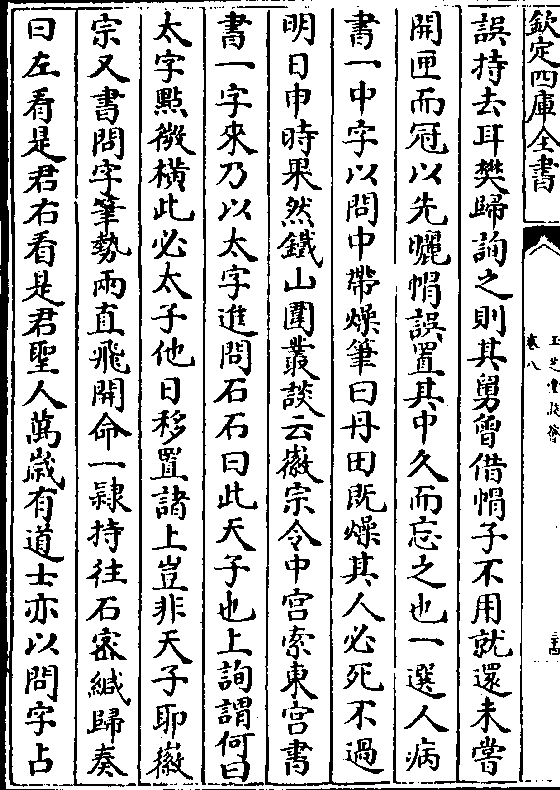 欽定四庫全書
卷八
玉芝堂談薈
誤持去耳樊歸詢之則其舅曾借㡌子不用就還未嘗
開匣而冠以先曬㡌誤置其中久而忘之也一選人病
書一中字以問中帶燥筆曰丹田既燥其人必死不過
明日申時果然鐵山圍叢談云徽宗令中宮索東宮書
書一字來乃以太字進問石石曰此天子也上詢謂何曰
太字點微橫此必太子他日移置諸上豈非天子耶徽
宗又書問字筆勢兩直飛開命一隸持往石密緘歸奏
曰左看是君右看是君聖人萬歲有道士亦以問字占